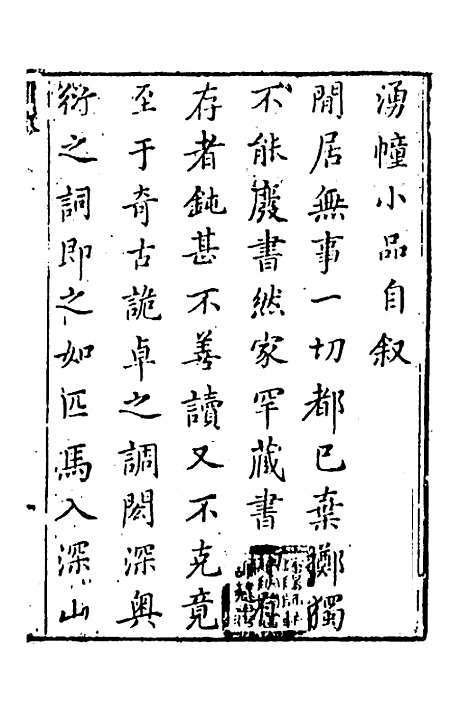 湧幢小品自叙
閒居無事一切都已棄擲獨
不能廢書然家罕藏書
存者鈍甚不善讀又不克竟
至于奇古詭卓之調閎深奥
衍之詞即之如匹馬入深山